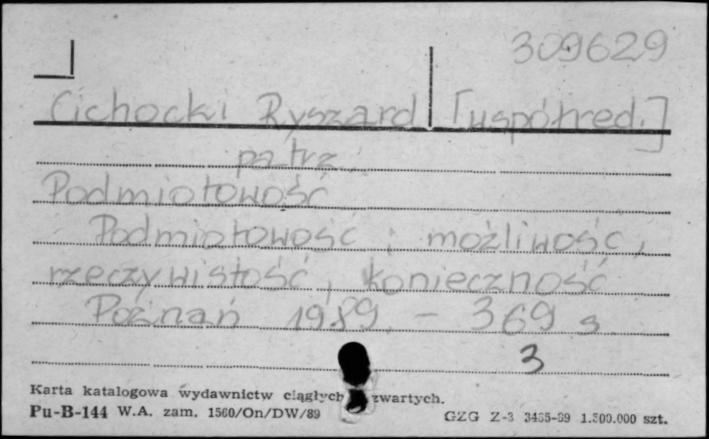 309629
Cichocki Ryszard [współred.]
patrz
Podmiotowość
Podmiotowość : możliwość,
rzeczywistość, konieczność
Poznań 1989. - 369 s
3
Karta katalogowa wydawnictw ciągłych zwartych.
Pu-B-144 W.A. zam. 1560/On/DW/89 GZG Z-3 3485-89 1.500.000 szt.